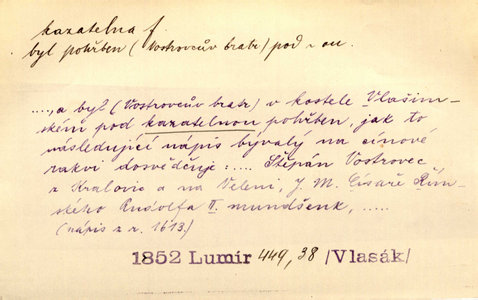 kazatelna f.
byl pohřben (Vostrovcův bratr) pod - ou.
...., a byl (Vostrovcův bratr) v kostele Vlašim-
ském pod kazatelnou pohřben, jak to
následující nápis bývalý na cínové
rakvi dosvědčuje: .... Štěpán Vostrovec
z Kralovic a na Veleni, J. M. Císaře Řím-
ského Rudolfa II. mundšenk, .....
(nápis z r. 1613.)
1852 Lumír 449, 38 /Vlasák/